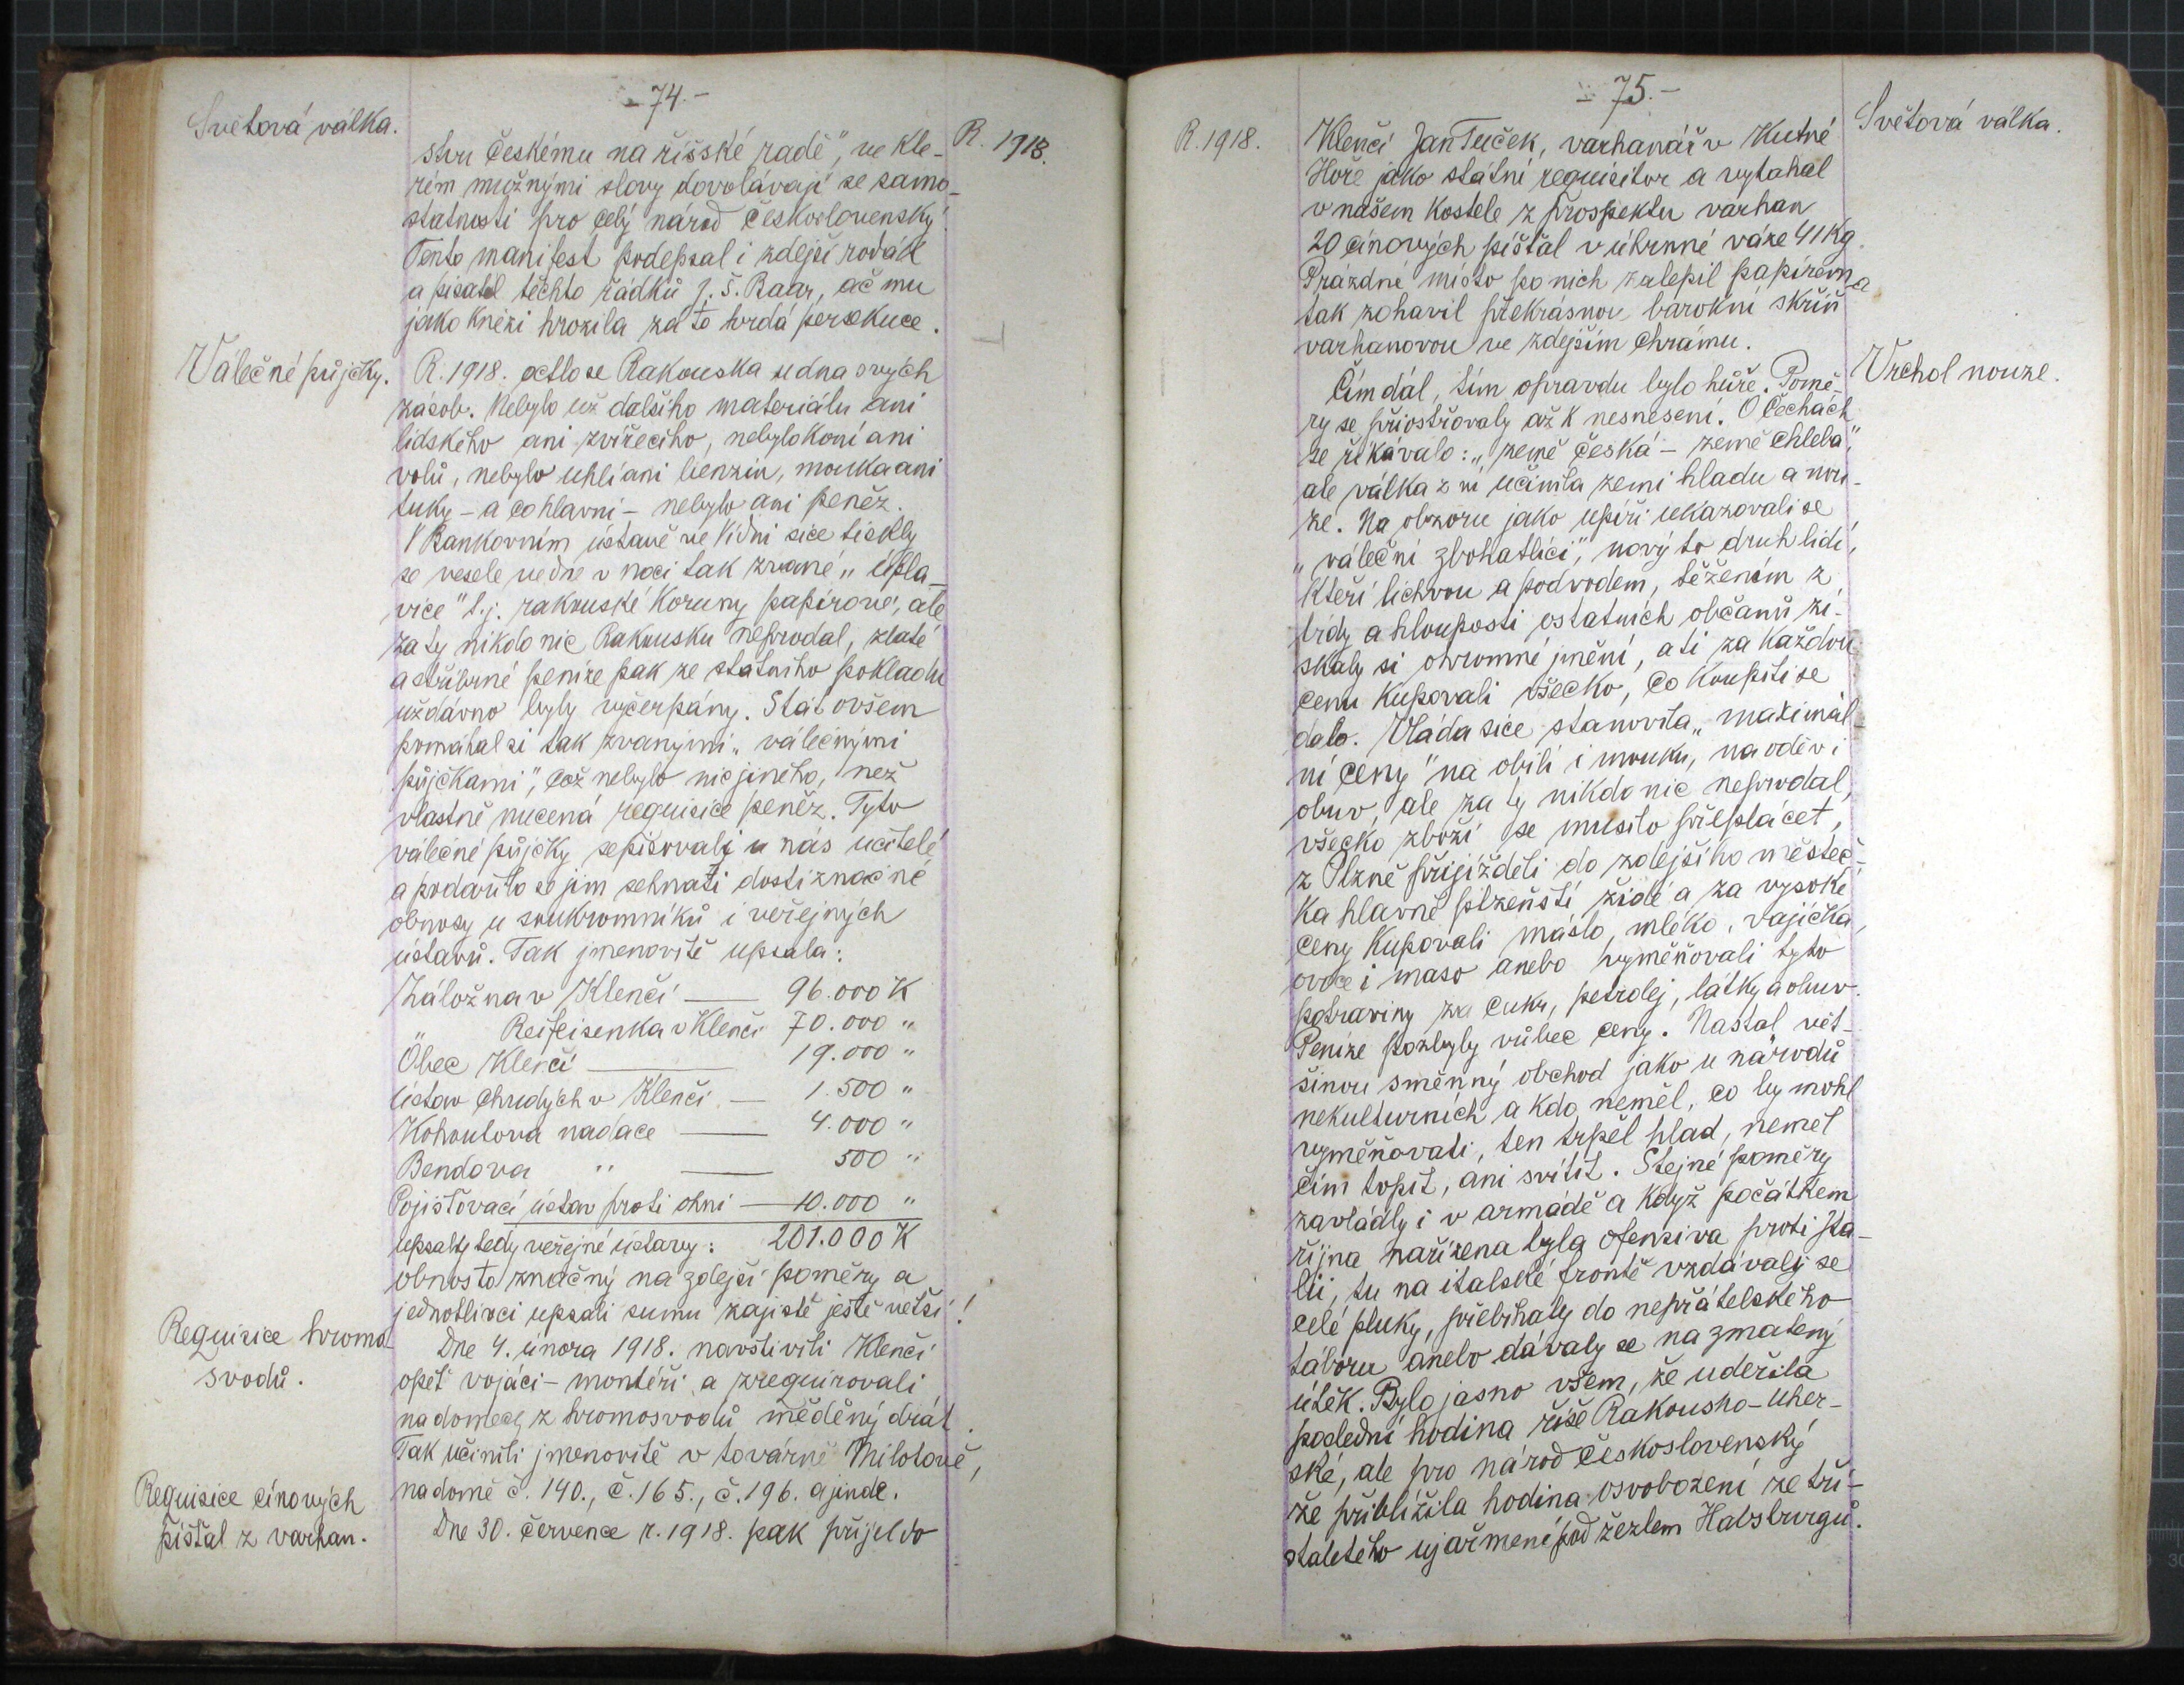 - 74.-
Světová válka.
R. 1918.
stvu českému na říšské radě", ve kte-
rém mužnými slovy dovolávají se samo-
statnosti pro celý národ československý.
Tento manifest podepsal i zdejší rodák
a pisatel těchto řádků J. Š. Baar, ač mu
jako knězi hrozila za to tvrdá persekuce.
Válečné půjčky.
R. 1918. octlo se Rakousko u dna svých
zásob. Nebylo už dalšího materiálu ani
lidského ani zvířecího, nebylo koní ani
volů, nebylo uhlí ani benzin, mouka ani
tuky - a co hlavní - nebylo ani peněz.
V Bankovním ústavě ve Vídni sice tiskly
se vesele ve dne v noci tak zvané „úpla-
vice" t.j. rakouské koruny papírové, ale
za ty nikdo nic Rakousku neprodal, zlaté
a stříbrné peníze pak ze státního pokladu
už dávno byly vyčerpány. Stát ovšem
pomáhal si tak zvanými „válečnými
půjčkami", což nebylo nic jiného, než
vlastně nucená requisice peněz. Tyto
válečné půjčky sepisovali u nás učitelé
a podařilo se jim sehnati dosti značné
obnosy u soukromníků i veřejných
ústavů. Tak jmenovitě upsala:
Záložna v Klenčí — 96.000 K
„ Reifeisenka v Klenčí 70.000 "
Obec Klenčí — 19.000 "
Ústav chudých v Klenčí — 1.500 "
Kohoutova nadace — 4.000 "
Bendova " — 500 "
Pojišťovací ústav proti ohni — 10.000 "
upsaly tedy veřejné ústavy: 201.000 K
obnos to značný na zdejší poměry a
jednotlivci upsali sumu zajisté ještě větší!
Requisice hromo
svodů.
Dne 4. února 1918. navštívili Klenčí
opět vojáci - montéři a zrequirovali
na domech z hromosvodů měděný drát.
Tak učinili jmenovitě v továrně Milotově,
na domě č. 140., č. 165., č. 196. a jinde.
Requisice cínových
píšťal z varhan.
Dne 30. července r. 1918. pak přijel do
- 75.-
R. 1918.
Světová válka.
Klenčí Jan Tuček, varhanář v Kutné
Hoře jako státní requisitor a vytahal
v našem kostele z prospektu varhan
20 cínových píšťal v úhrnné váze 41 Kg.
Prázdné místo po nich zalepil papírem a
tak zohavil překrásnou barokní skříň
varhanovou ve zdejším chrámu.
Vrchol nouze.
Čím dál, tím opravdu bylo hůře. Pomě-
ry se přiostřovaly až k nesnesení. O Čechách
se říkávalo: „země česká - země chleba",
ale válka z ní učinila zemi hladu a nou-
ze. Na obzoru jako upíři ukazovali se
„váleční zbohatlíci", nový to druh lidí,
kteří lichvou a podvodem, těžením z
bídy a hlouposti ostatních občanů zí-
skaly si ohromné jmění, a ti za každou
cenu kupovali všecko, co koupiti se
dalo. Vláda sice stanovila „maximál
ní ceny" na obilí i mouku, na oděv i
obuv, ale za ty nikdo nic neprodal,
všecko zboží se musilo přeplácet,
z Plzně přijížděli do zdejšího městeč-
ka hlavně plzeňští židé a za vysoké
ceny kupovali máslo, mléko, vajíčka,
ovoce i maso anebo vyměňovali tyto
potraviny za cukr, petrolej, látky a obuv.
Peníze pozbyly vůbec ceny. Nastal vět-
šinou směnný obchod jako u národů
nekulturních a kdo neměl, co by mohl
vyměňovati, ten trpěl hlad, neměl
čím topit, ani svítit. Stejné poměry
zavládly i v armádě a když počátkem
října nařízena byla ofensiva proti Ita-
lii, tu na italské frontě vzdávaly se
celé pluky, přebíhaly do nepřátelského
táboru anebo dávaly se na zmatený
útěk. Bylo jasno všem, že udeřila
poslední hodina říše Rakousko-Uher-
ské, ale pro národ československý
že přiblížila hodina osvobození ze tří-
staletého ujařmení pod žezlem Habsburgů.